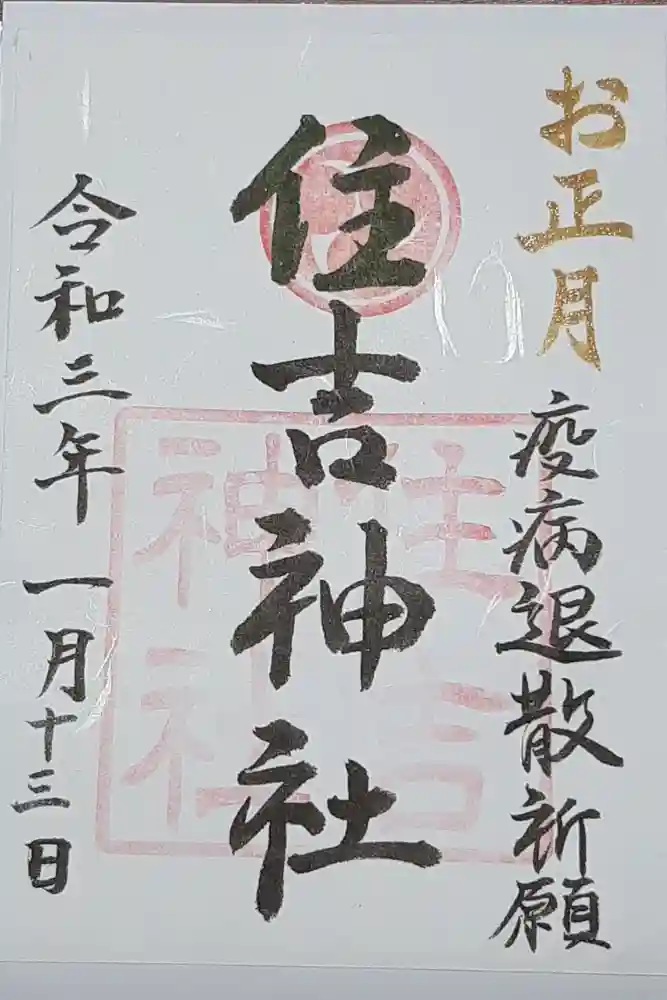 お正月
疫病退散祈願
住吉神社
住吉
神社
令和三年一月十三日